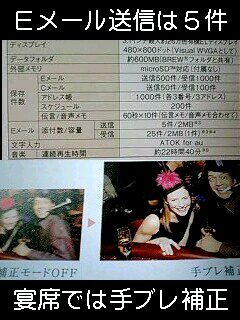 Eメール送信は5件
ディスプレイ
480×800ドット(Visual WVGAとして)
データフォルダ 約600MB(BREW®フォルダと共有)
外部メモリ microSD™対応(付属なし)
保存件数
Eメール 送信500件/受信1000件
Cメール 送信100件/受信100件
アドレス帳 1000件(各3番号/3アドレス)
スケジュール 200件
伝言/音声メモ 60秒×10件(伝言・音声メモ合計)
Eメール 添付数/容量 送信 5件/2MB
受信 25件/2MB(1件)
文字入力 ATOK for au
音楽 連続再生時間 約22時間40分
補正モードOFF
手ブレ補正
宴席では手ブレ補正